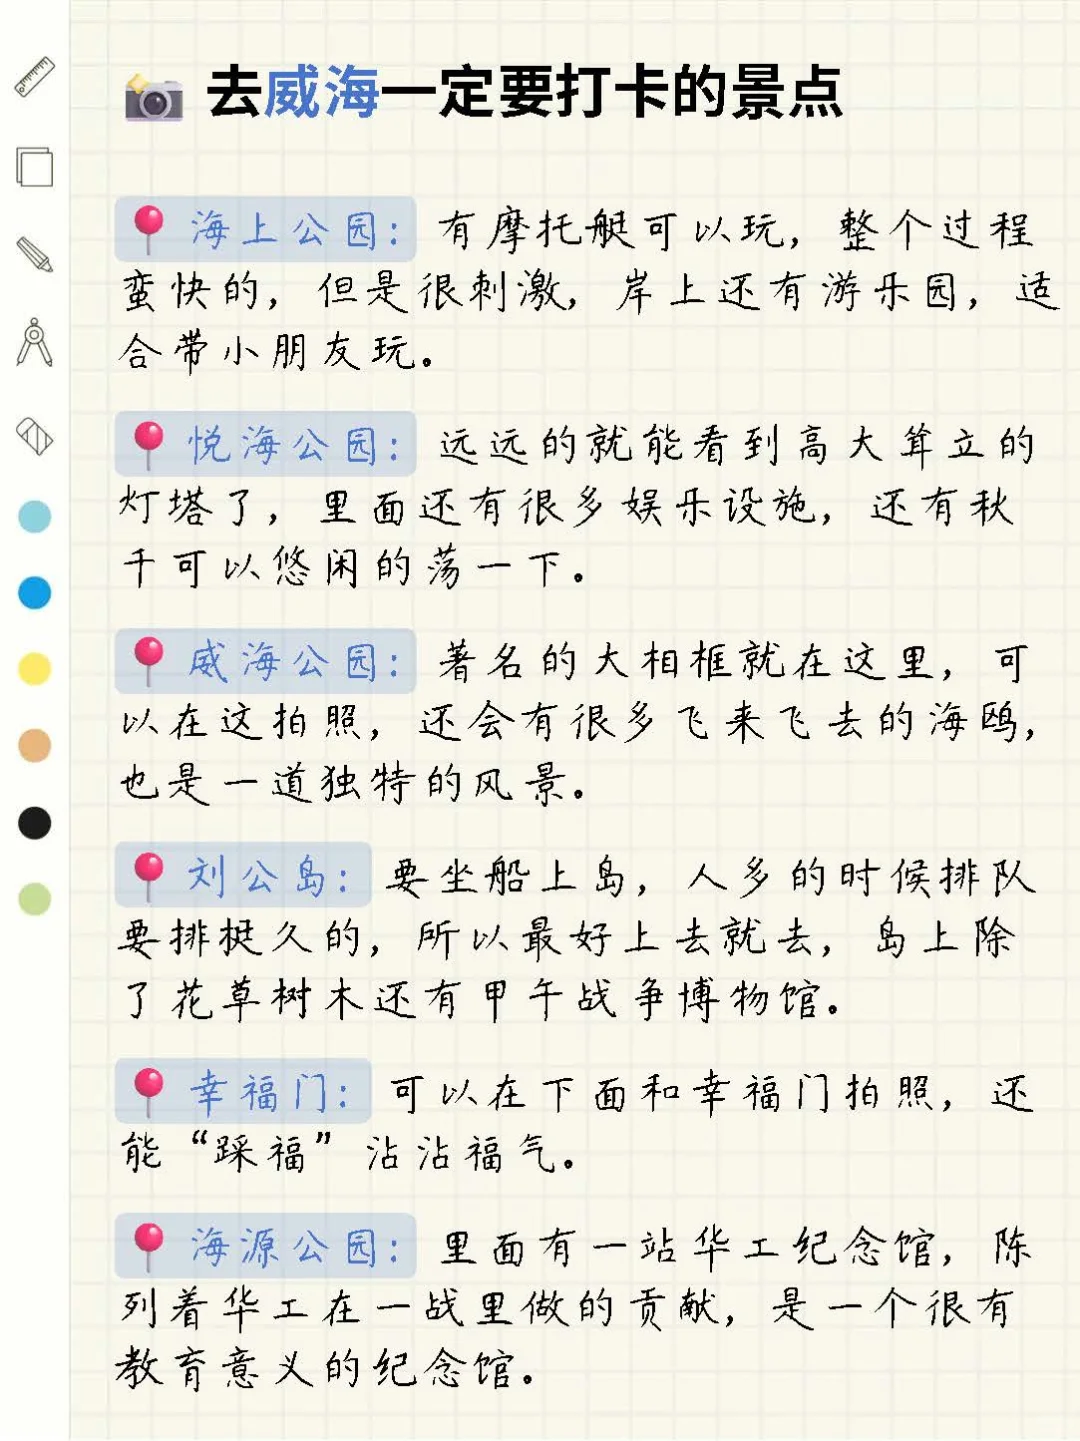 去威海一定要打卡的景点
海上公园：有摩托艇可以玩，整个过程
蛮快的，但是很刺激，岸上还有游乐园，适
合带小朋友玩。
悦海公园：远远的就能看到高大耸立的
灯塔了，里面还有很多娱乐设施，还有秋
千可以悠闲的荡一下。
威海公园：著名的大相框就在这里，可
以在这拍照，还会有很多飞来飞去的海鸥，
也是一道独特的风景。
刘公岛：要坐船上岛，人多的时候排队
要排挺久的，所以最好上去就去，岛上除
了花草树木还有甲午战争博物馆。
幸福门：可以在下面和幸福门拍照，还
能“踩福”沾沾福气。
海源公园：里面有一站华工纪念馆，陈
列着华工在一战里做的贡献，是一个很有
教育意义的纪念馆。